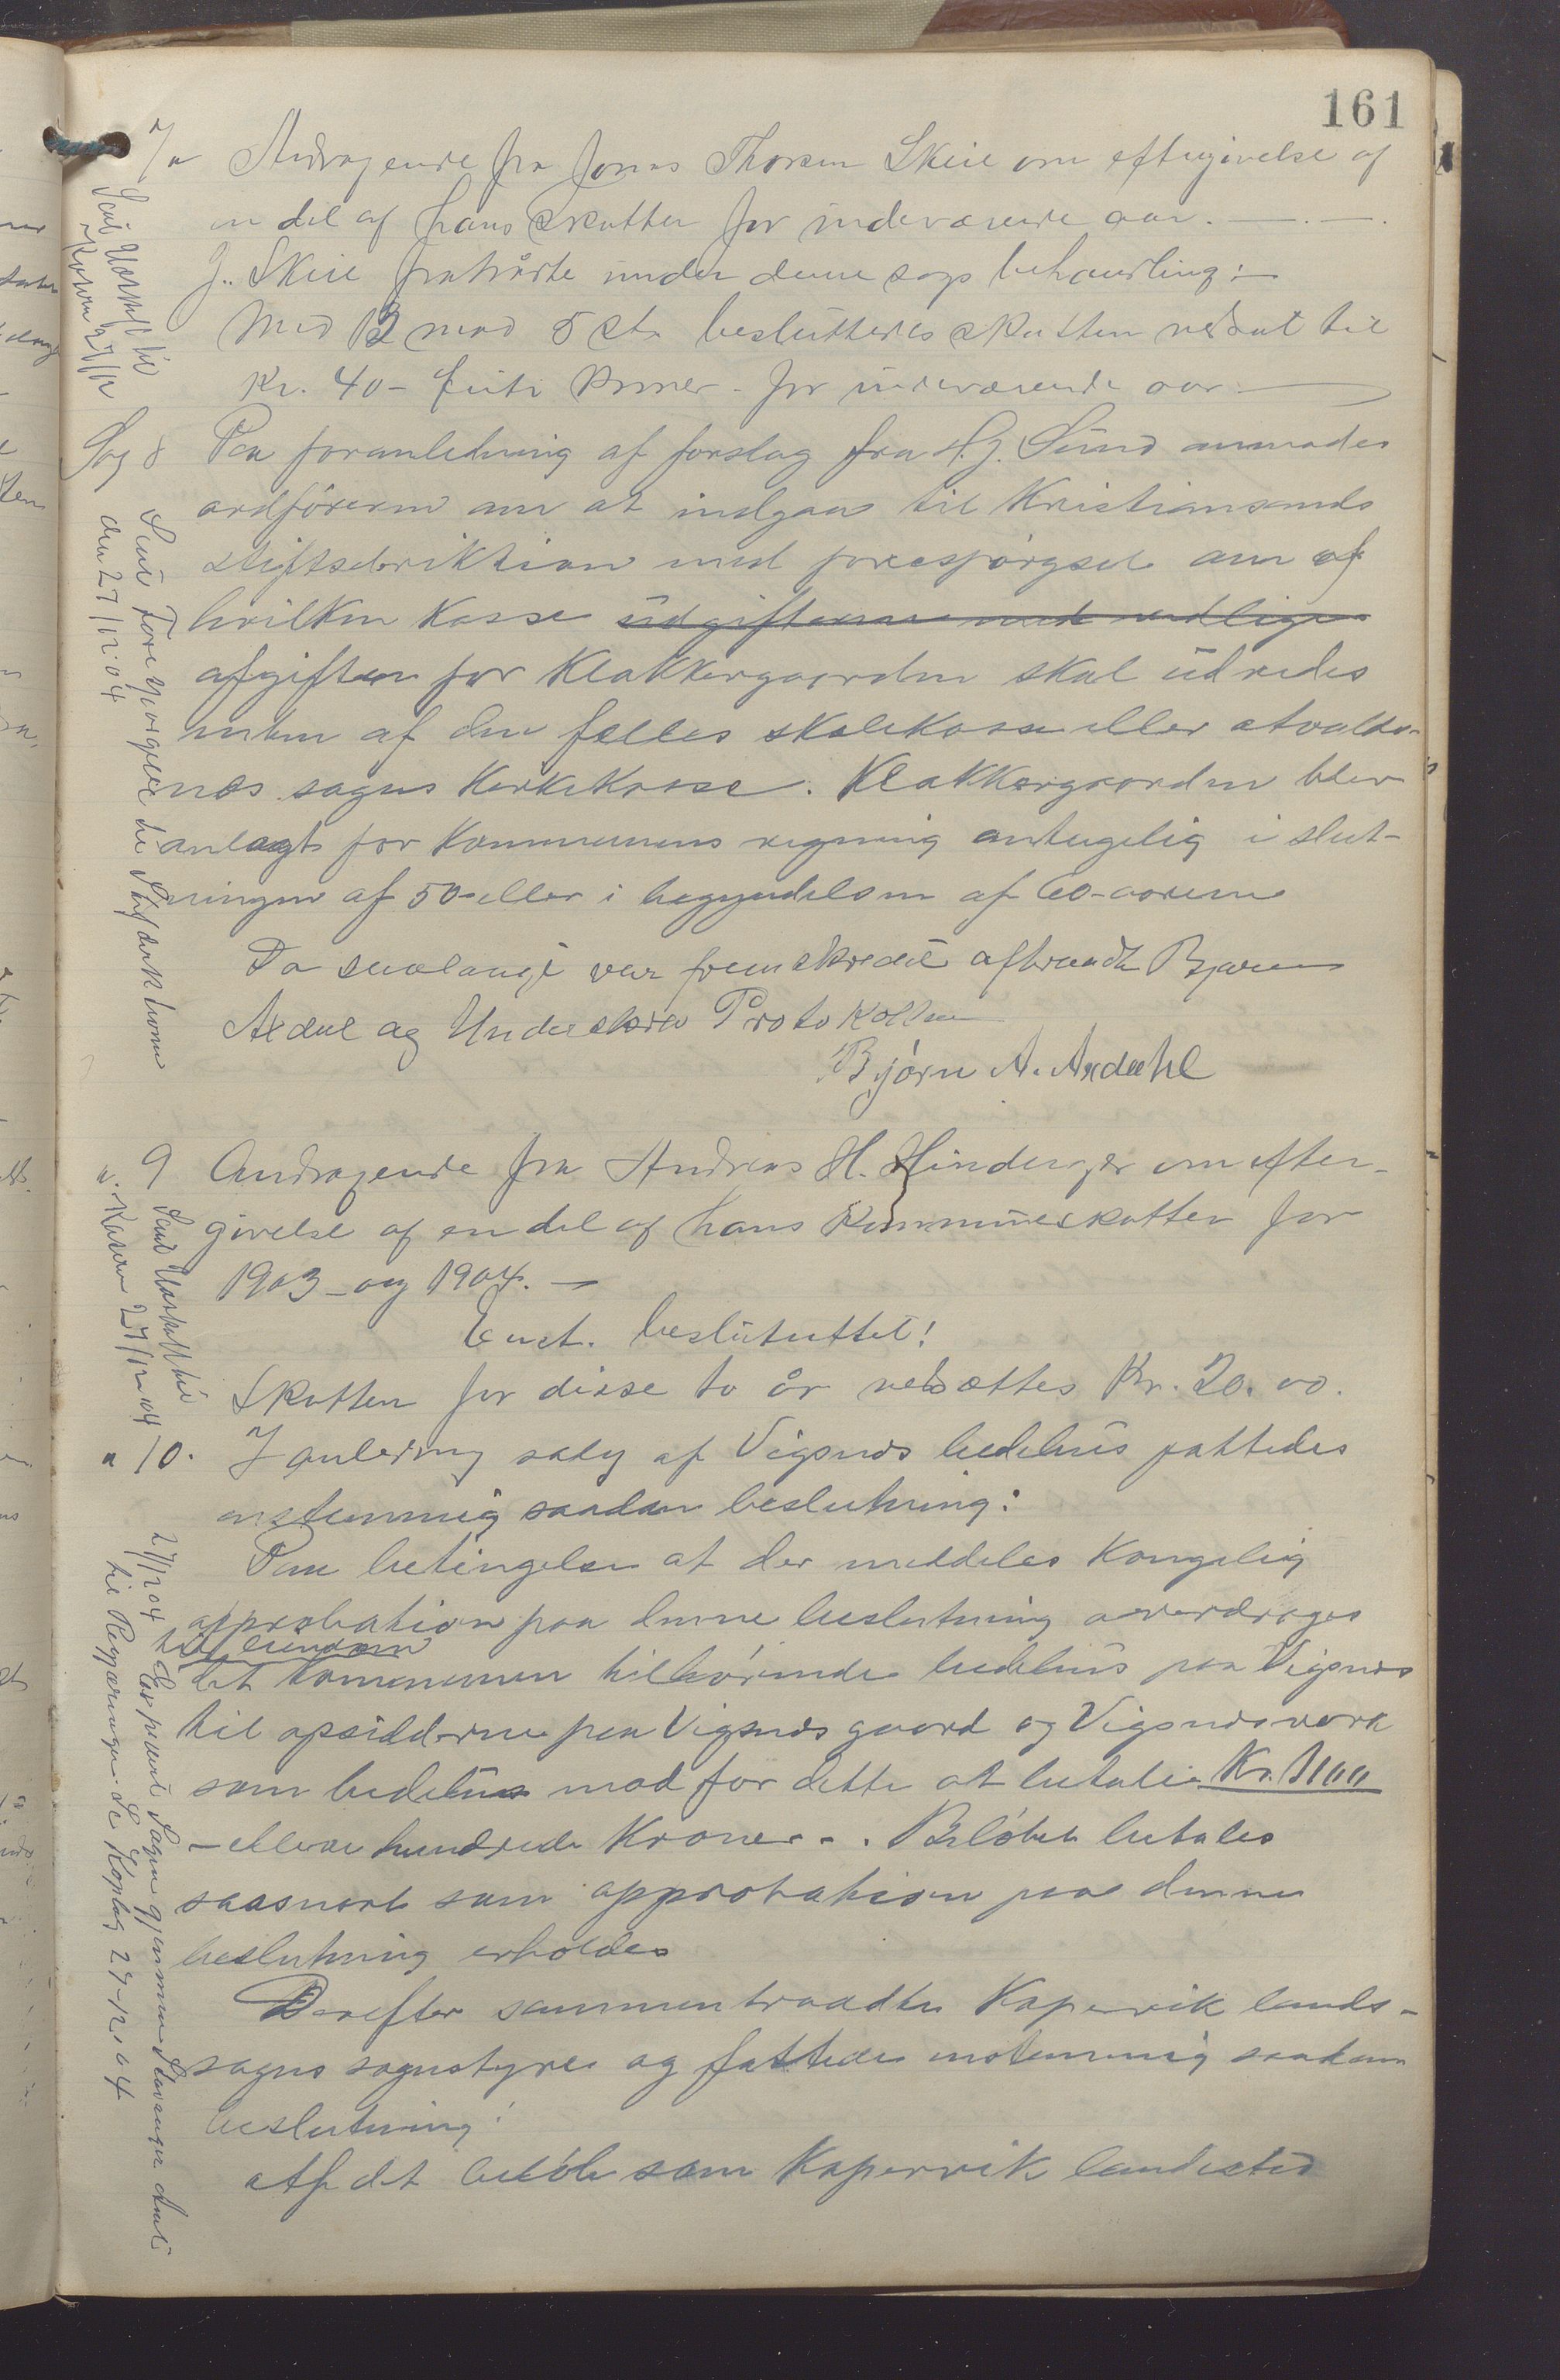 161
7/a Andragende fra Jonas Thorsen Skeie om eftergivelse af
en del af hans Skatter for indeværende aar.
J. Skeie fratrådte under denne sags behandling:
Med 12 mod 5 st. besluttedes skatten nedsat til
Kr. 40- firti Kroner - for indeværende aar
Sendt Udskrift til
Kasern 27/12
Sag 8 Paa foranledning af forslag fra S.J. Sund anmodes
ordføreren om at indgaa til Kristiansands
stiftsdiriktion med forespørgsel om af
hvilken Kasse udgifterne med vedlige
afgiften for Klokkergaarden skal udredes
enten af den fælles skolekasse eller atvalds-
næs sogns Kirkekasse. Klokkergaarden blev
anlagt for Kommunens regning antagelig i slut-
ningen af 50- eller i begyndelsen af 60-aarene
Sendt Forespørgsel til Stifdirektionen
den 27/12.04
Da saalangt var fremskredet aftraadte Bjørn
Axdal og Underskrev Protokollen
Bjørn A. Axdahl
9 Andragende fra Andreas H. Hinderager om efter-
givelse af en del af hans Kommuneskatter for
1903 - og 1904. -
Enst. besluttet!
Skatten for disse to år nedsættes Kr. 20.00.
Sendt Udskrift til
Kasern 27/12 04
" 10. I anledning salg af Vigsnes bedehus fattedes
enstemmig saadan beslutning:
Paa betingelse at der meddeles Kongelig
approbation paa denne beslutning overdrages
til eiendom
det kommunen tilhørende bedehus paa Vigsnes
til opsidderne paa Vigsnes gaard og Vigsnes verk
som bedehus mod for dette at betale Kr. 1100
- elleve hundrede Kroner -. Beløbet betales
saasnart som approbation paa denne
beslutning erholdes
27/12 04 Expedert Sagen gjennem Stavanger Amt
til Regjeringen. Se Kopbog 27-12-04
Derefter sammentraadte Kopervik lands-
sogns sognestyre og fattede enstemmig saadan
beslutning:
Af det beløb som Kopervik landsted